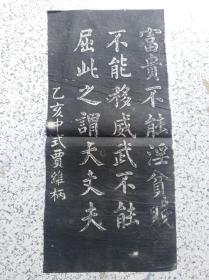 富貴不能淫貧賤
不能移威武不能
屈此之謂大丈夫
乙亥中式賈維柄